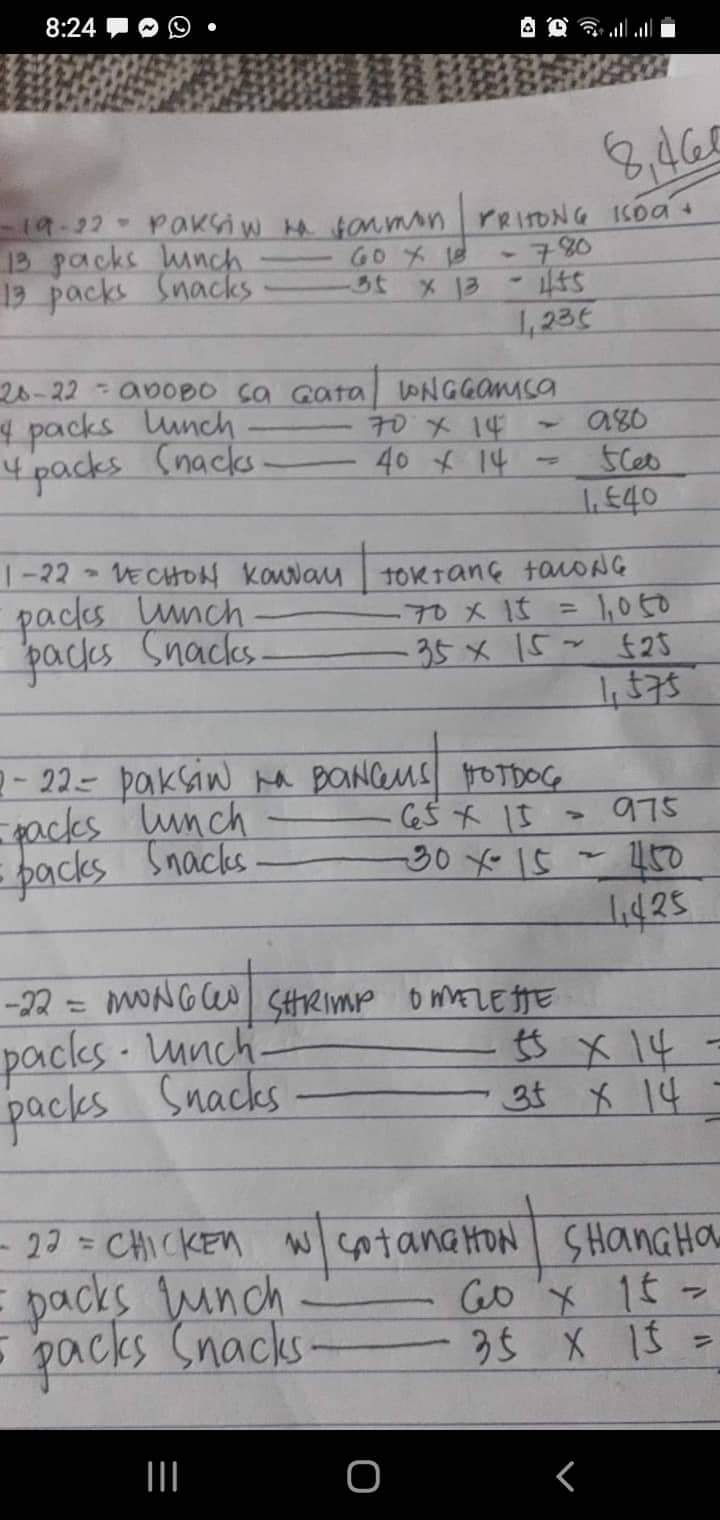 8:24
8,460
-19-22 = PAKSIW NA SALMON / PRITONG ISDA
13 packs lunch — 60 x 13 - 780
13 packs Snacks — 35 x 13 - 455
1,235
20-22 = ADOBO SA GATA / LONGGANISA
4 packs lunch — 70 x 14 - 980
4 packs Snacks — 40 x 14 = 560
1,540
1-22 = LECHON KAWALI / TORTANG TALONG
packs lunch — 70 x 15 = 1,050
packs Snacks — 35 x 15 - 525
1,575
- 22 = PAKSIW NA BANGUS / HOTDOG
packs lunch — 65 x 15 = 975
packs Snacks — 30 x 15 - 450
1,425
-22 = MONGGO / SHRIMP OMELETTE
packs lunch — 55 x 14 -
packs Snacks — 35 x 14 =
- 22 = CHICKEN W/ SOTANGHON / SHANGHA
packs lunch — 60 x 15 =
packs Snacks — 35 x 15 =